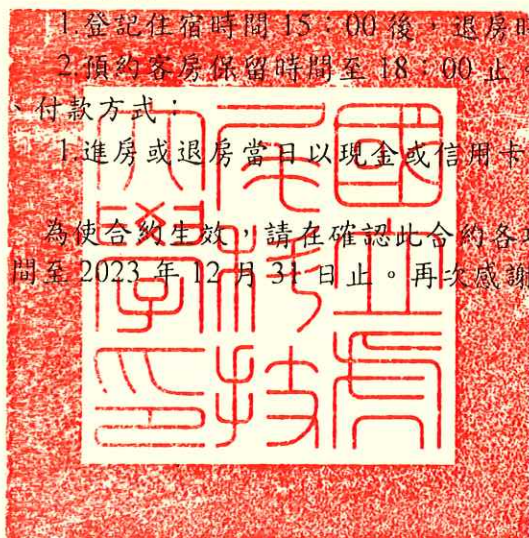 1.登記住宿時間 15：00 後，退房時
2.預約客房保留時間至 18：00 止
、付款方式：
1.進房或退房當日以現金或信用卡
為使合約生效，請在確認此合約各項
間至 2023 年 12 月 31 日止。再次感謝
國立虎
尾科技
大學印